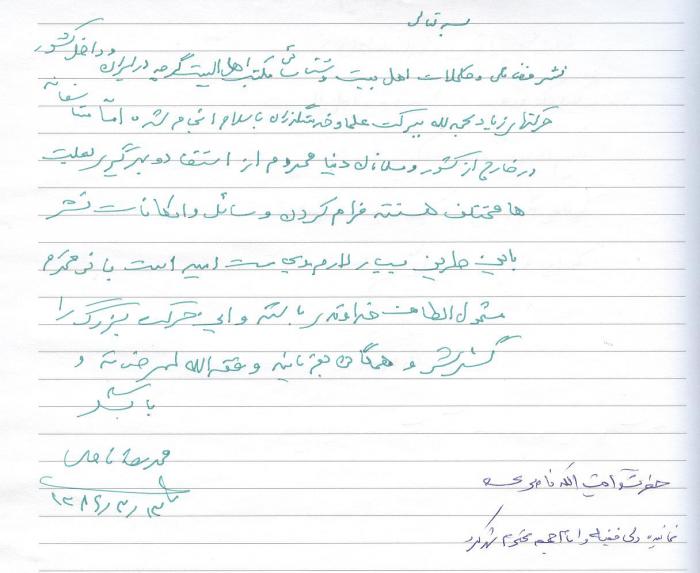 بسمه تعالی
نشر فضائل و کمالات اهل بیت و شناسائی مکتب اهل البیت گرچه در ایران و داخل کشور
حرکتهای زیاد بحمدلله ببرکت علما و خدمتگذاران باسلام انجام شده اما متأسفانه
در خارج از کشور مسلمانان دنیا محروم از استفاده و بهره‌گیری بعلت
ها مختلف هستند فراهم کردن وسائل و امکانات نشر
باین طریق بسیار لازم امید است
مشمول الطاف خداوند باشند و این حرکت بزرگ را
گسترش و همگان وفقه الله لمرضاته و
باشد
محمدرضا ناصری
۱۳۸۶/۳/۱۳
حضرت آیت الله ناصری
نماینده ولی فقیه و امام جمعه محترم شهرکرد